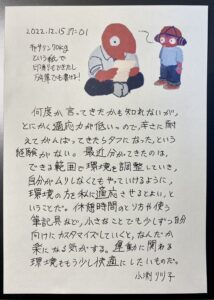 2022.12.15. 17:01
という紙で
何度か言ってきたかも知れないが、
とにかく適応力が低いので、辛さに耐
えてがんばってきたらタフになった、という
経験がない。最近分かってきたのは、
できる範囲で環境を調整していき、
自分がムリしなくてもやっていけるように、
環境の方を私に適応させるとよい、と
いうことだ。休憩時間のとり方や使う
筆記具など、小さなことでも少しずつ自分
向けにカスタマイズしていくと、なんだか
楽になる気がする。運動に関わる
環境ももう少し快適にしたいものだ。